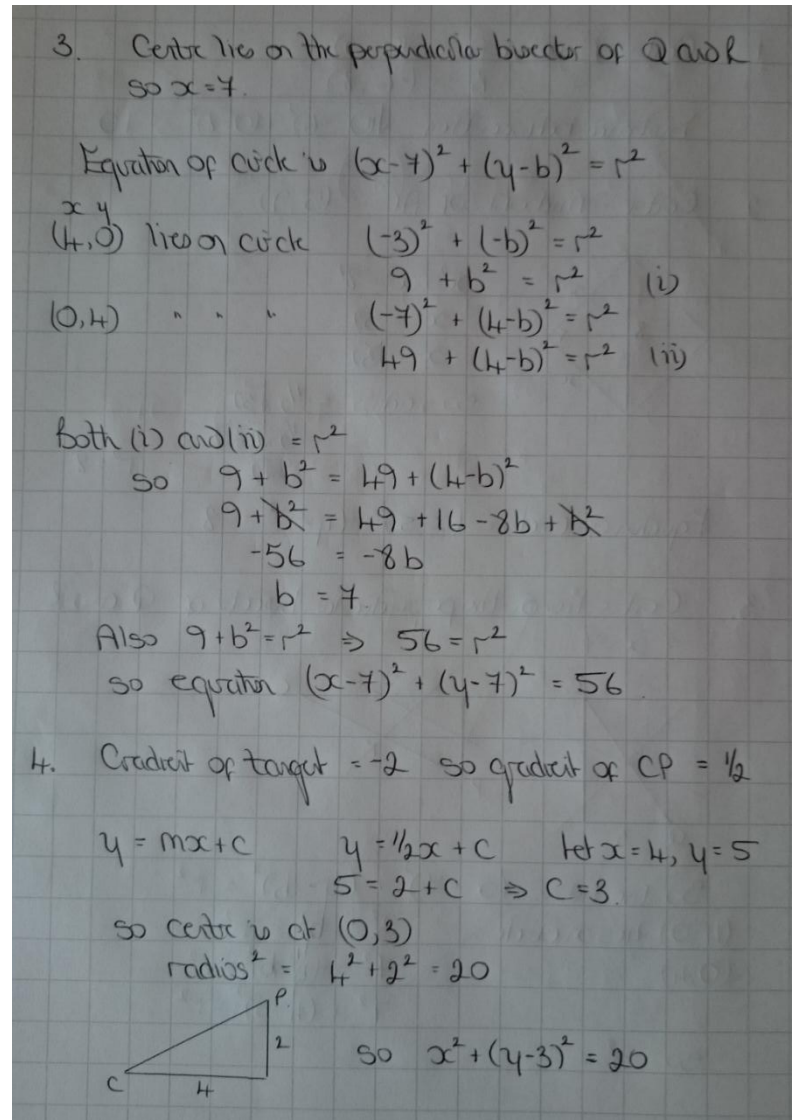 3. Centre lies on the perpendicular bisector of Q and R
so x = 7.
Equation of circle is (x-7)² + (y-b)² = r²
x y
(4,0) lies on circle (-3)² + (-b)² = r²
9 + b² = r² (i)
(0,4) " " " (-7)² + (4-b)² = r²
49 + (4-b)² = r² (ii)
Both (i) and (ii) = r²
so 9 + b² = 49 + (4-b)²
9 + b² = 49 + 16 - 8b + b²
-56 = -8b
b = 7
Also 9 + b² = r² ⇒ 56 = r²
so equation (x-7)² + (y-7)² = 56.
4. Gradient of tangent = -2 so gradient of CP = 1/2
y = mx + c y = 1/2x + c let x = 4, y = 5
5 = 2 + c ⇒ c = 3.
so centre is at (0,3)
radius² = 4² + 2² = 20
P.
2 so x² + (y-3)² = 20
C 4